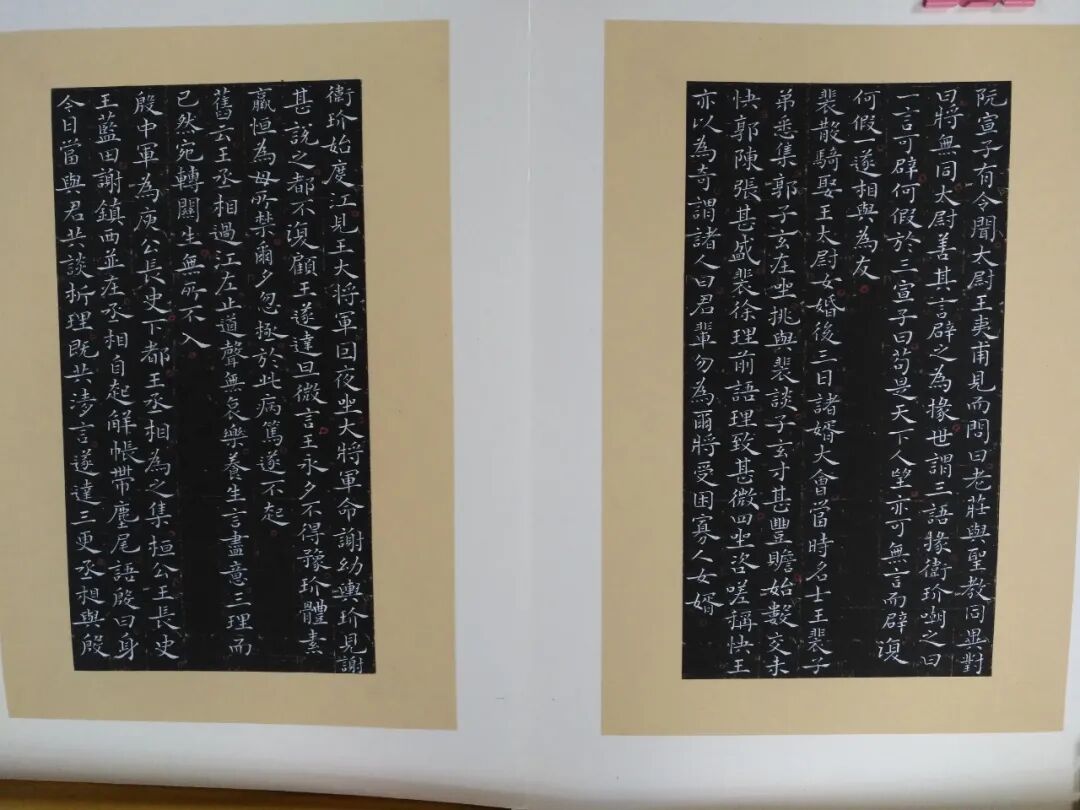 阮宣子有令聞太尉王夷甫見而問曰老莊與聖教同異對
曰將無同太尉善其言辟之為掾世謂三語掾衛玠嘲之曰
一言可辟何假於三宣子曰苟是天下人望亦可無言而辟復
何假一遂相與為友
裴散騎娶王太尉女婚後三日諸婿大會當時名士王裴子
弟悉集郭子玄在坐挑與裴談子玄才甚豐贍始數交未
快郭陳張甚盛裴徐理前語理致甚微四坐咨嗟稱快王
亦以為奇謂諸人曰君輩勿為爾將受困寡人女婿
衛玠始度江見王大將軍因夜坐大將軍命謝幼輿玠見謝
甚說之都不復顧王遂達旦微言王永夕不得豫玠體素
羸恒為母所禁爾夕忽極於此病篤遂不起
舊云王丞相過江左止道聲無哀樂養生言盡意三理而
已然宛轉關生無所不入
殷中軍為庾公長史下都王丞相為之集桓公王長史
王藍田謝鎮西並在丞相自起解帳帶麈尾語殷曰身
今日當與君共談析理既共清言遂達三更丞相與殷